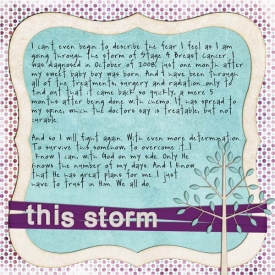 I can't even begin to describe the fear I feel as I am
going through the storm of Stage 4 Breast Cancer. I
was diagnosed in October of 2008, just one month after
my sweet baby boy was born. And I have been through
all of the treatments, surgery and radiation...only to
find out that it came back so quickly, a mere 5
months after being done with chemo. It has spread to
my spine, which the doctors say is treatable but not
curable.
And so I will fight again. With even more determination
to survive this somehow, to overcome it. I
know I can, with God on my side. Only He
knows the number of my days. And I know
that He has great plans for me. I just
have to trust in Him. We all do.
this storm